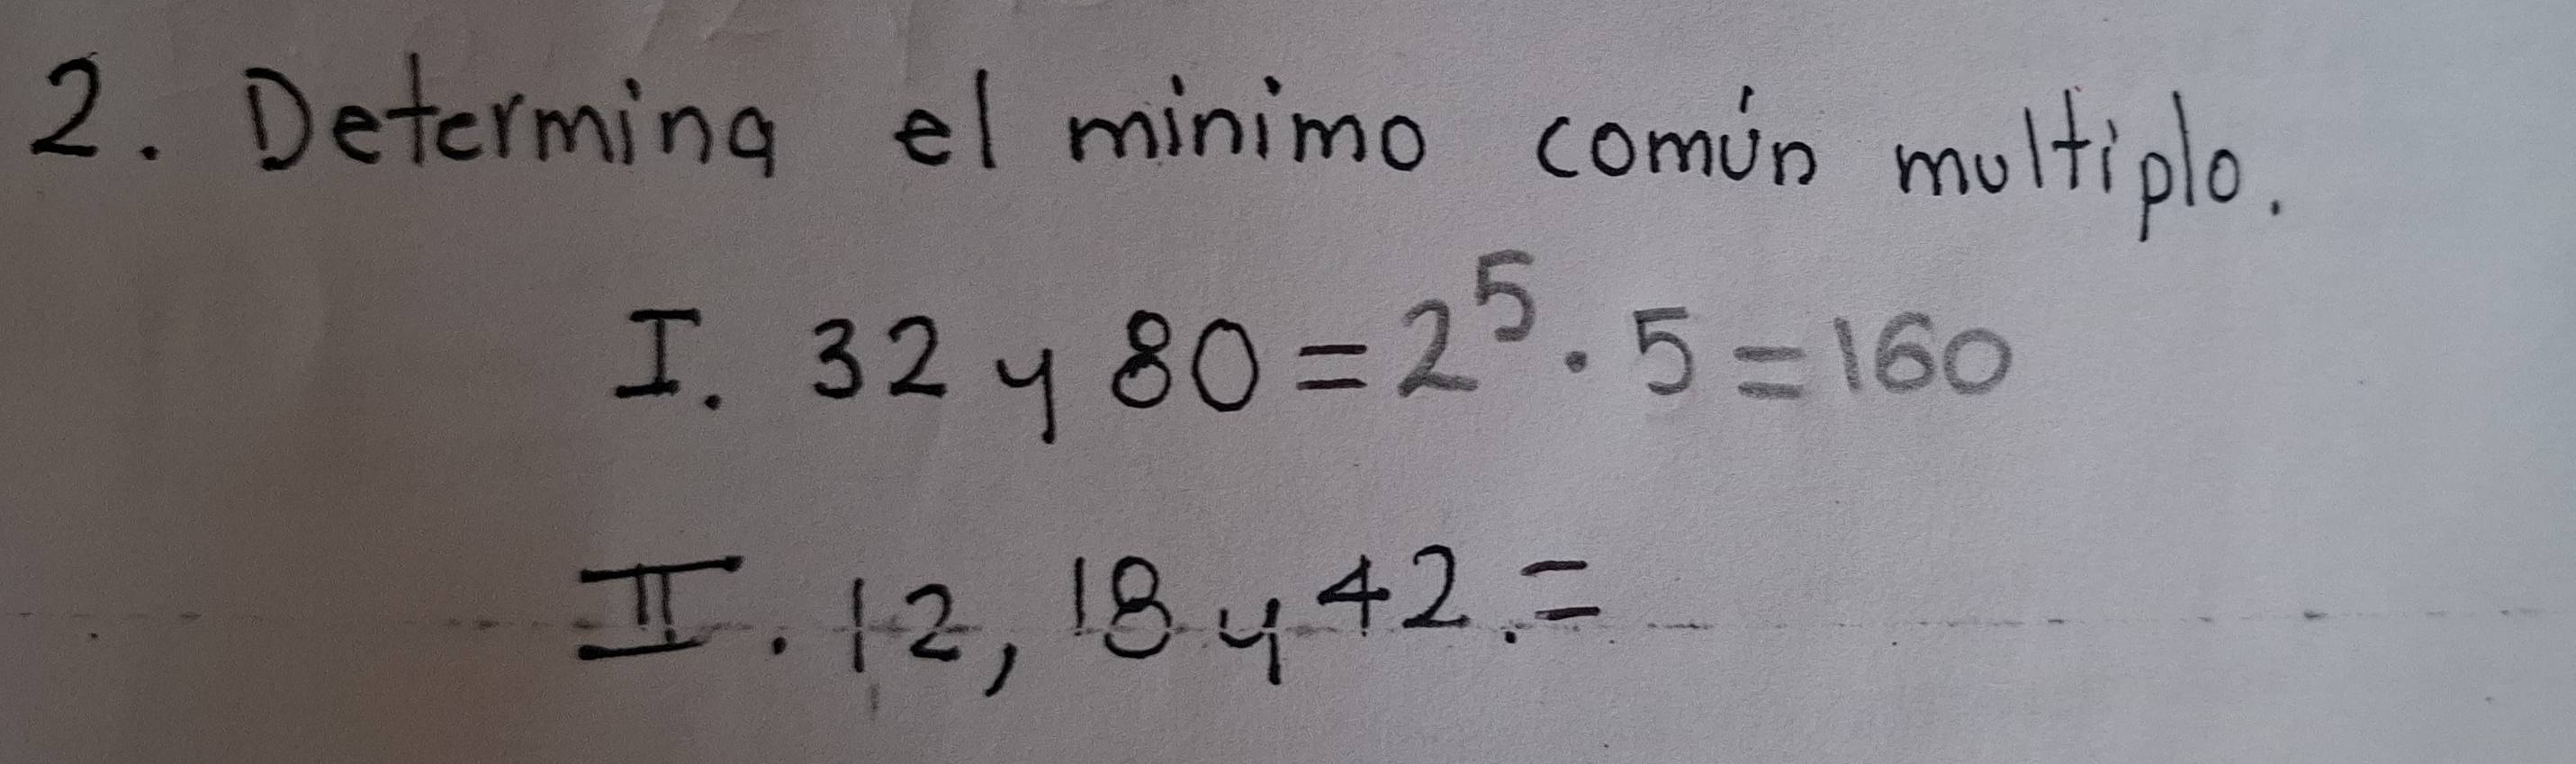 2. Determina el minimo común multiplo.
I. 32 y 80 = 2⁵ · 5 = 160
II. 12, 18 y 42. =